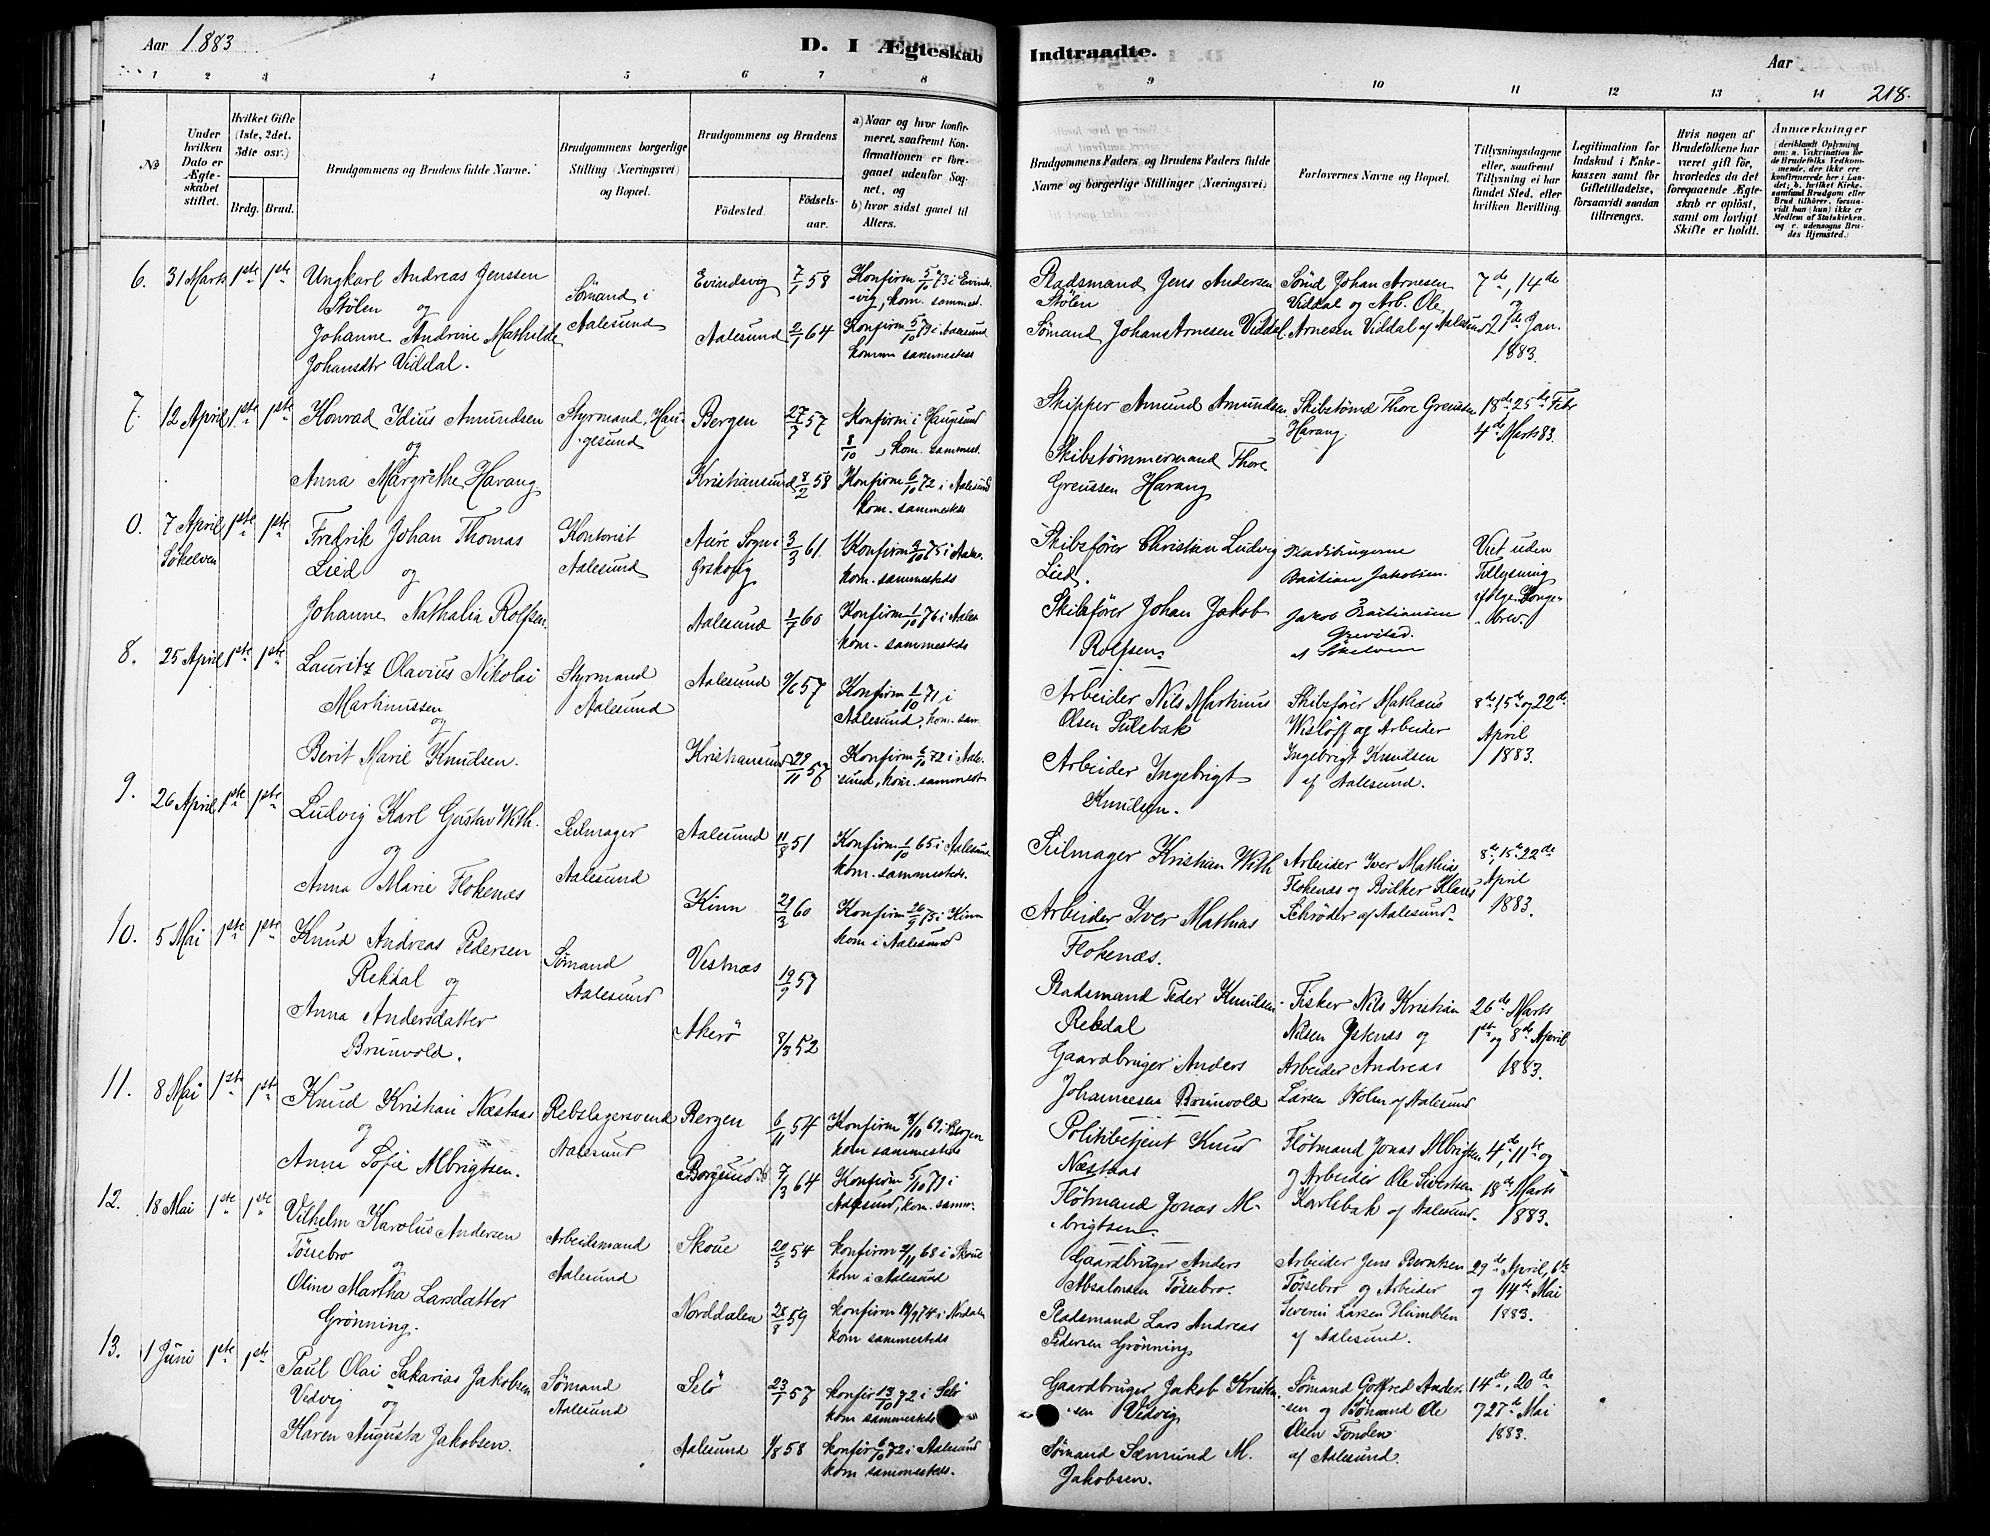 Aar 1883
D. I Ægteskab Indtraadte.
Aar
218.
1 2 3 4 5 6 7 8 9 10 11 12 13 14
№
Under hvilken Dato er Ægteskabet stiftet.
Hvilket Gifte (1ste, 2det, 3die osv.)
Brdg. Brud.
Brudgommens og Brudens fulde Navne.
Brudgommens borgerlige Stilling (Næringsvei) og Bopæl.
Brudgommens og Brudens
Fødested.
Fødselsaar.
a) Naar og hvor konfirmeret, saafremt Konfirmationen er foregaaet udenfor Sognet, og
b) hvor sidst gaaet til Alters.
Brudgommens Faders og Brudens Faders fulde Navne og borgerlige Stillinger (Næringsvei)
Forlovernes Navne og Bopæl.
Tillysningsdagene eller, saafremt Tillysning ei har fundet Sted, efter hvilken Bevilling.
Legitimation for Indskud i Enkekassen samt for Giftetilladelse, forsaavidt saadan tiltrænges.
Hvis nogen af Brudefolkene har været gift før, hvorledes da det foregaaende Ægteskab er opløst, samt om lovligt Skifte er holdt.
Anmærkninger
6. 31 Marts 1ste 1ste
Ungkarl Andreas Jenssen
Stølen og
Johanne Andrine Mathilde
Johansdtr Viddal.
Sømand i
Aalesund
Evindsvig 7/1 58
Konfirm 5/10 73 i Evinds
-vig, kom. sammest.
Aalesund 2/1 64
Konfirm 5/10 79 i Aalesund
komm sammesteds
Pladsmand Jens Andersen
Stølen
Sømand Johan Arnesen Viddal
Sømd Johan Arnesen
Viddal og Arb. Ole
Arnesen Viddal af Aalesund
7de, 14de
og
21de Jan.
1883.
7. 12 April 1ste 1ste
Konrad Idius Amundsen
og
Anna Margrethe Harang
Styrmand, Hau-
gesund
Bergen 27/7 57
Konfirm i Haugesund
8/10, kom. sammest.
Kristiansund 8/2 58
Konfirm 6/10 72 i Aalesund
kom. sammesteds
Skipper Amund Amundsen
Skibstømmermand Thore
Greussen Harang
Skibstømd Thore Greussen
Harang
18de 25de Febr
4de Marts 83.
0. 7 April 1ste 1ste
Søkelven
Fredrik Johan Thomas
Lied og
Johanne Nathalia Rolfsen
Kontorist
Aalesund
Aure Sogn i
Ørskog 3/3 61.
kom. sammesteds
Aalesund 1/7 60
Konfirm 1/10 76 i Aales
kom. sammesteds
Skibsfører Christian Ludvig
Lied.
Skibsfører Johan Jakob
Rolfsen.
Bastian Jakobsen
Jakob Bastiansen
af Søkelven
Viet uden
Tillysning
ifølge Konge-
brev.
8. 25 April 1ste 1ste
Lauritz Olavius Nikolai
Martinussen
og
Berit Marie Knudsen.
Styrmand
Aalesund
Aalesund 9/6 57
Konfirm 1/10 71 i
Aalesund, kom. sam
Kristiansund 29/11 57
Konfirm 6/10 72 i Aale-
sund, kom. sammest
Arbeider Nils Martinus
Olsen Sulebak
Arbeider Ingebrigt
Knudsen.
Skibsfører Mathæus
Wisløff og Arbeider
Ingebrigt Knudsen
af Aalesund.
8de 15de og 22de
April
1883.
9. 26 April 1ste 1ste
Ludvig Karl Gustav With.
og
Anna Marie Flokenæs
Seilmager
Aalesund
Aalesund 11/8 51
Konfirm 1/10 65 i Aalesund
kom. sammesteds.
Kinn 29/3 60
Konfirm 26/9 75 i Kinn
kom i Aalesund
Seilmager Kristian With
Arbeider Iver Mathias
Flokenæs.
Arbeider Iver Mathias
Flokenæs og Bødker Klaus
Schrøder af Aalesund.
8de, 15de 22de
April
1883.
10. 5 Mai 1ste 1ste
Knud Andreas Pedersen
Rekdal og
Anna Andersdatter
Brunvold.
Sømand
Aalesund
Vestnæs 19/9 57
Akerø 8/3 52
Pladsmand Peder Knudsen
Rekdal
Gaardbruger Anders
Johannesen Brunvold
Fisker Nils Kristian
Nilsen Ystenæs og
Arbeider Andreas
Larsen Holm af Aalesund
26de Marts
1ste og 8de April
1883.
11. 8 Mai 1ste 1ste
Knud Kristian Næstaas
og
Anna Sofie Albrigtsen.
Rebslagersvend
Aalesund
Bergen 6/11 54
Konfirm 3/10 69 i Bergen
kom sammesteds
Borgund 7/3 64
Konfirm 5/10 79 i
Aalesund, kom. samm.
Politibetjent Knud
Næstaas
Fløtmand Jonas Al-
brigtsen.
Fløtmand Jonas Albrigtsen
og Arbeider Ole Sivertsen
Karlsbak af Aalesund.
4de, 11te og
18de Marts
1883.
12. 18 Mai 1ste 1ste
Vilhelm Karolus Andersen
Tøssebro
og
Oline Martha Larsdatter
Grønning.
Arbeidsmand
Aalesund
Skoue 20/5 54
konfirm 9/11 68 i Skoue
kom i Aalesund
Norddalen 28/8 59
konfirm 19/9 74 i Nordalen
kom sammesteds
Gaardbruger Anders
Absalonsen Tøssebro.
Pladsmand Lars Andreas
Pedersen Grønning
Arbeider Jens Berntsen
Tøssebro og Arbeider
Severin Larsen Humblen
af Aalesund.
29de April, 6te
og 14de Mai
1883.
13. 1 Juni 1ste 1ste
Paul Olai Sakarias Jakobsen
Vedvig og
Karen Augusta Jakobsen.
Sømand
Aalesund
Selø 23/1 57
konfir 13/10 72 i Selø
kom sammesteds
Aalesund 1/8 58
konfir 6/10 72 i Aalesund
kom sammesteds.
Gaardbruger Jakob Kristen-
sen Vedvig
Sømand Sæmund M.
Jakobsen.
Sømand Gotfred Ander-
sen og Sømand Ole
Olsen Fonden
af Aalesund.
14de, 20de
27de Mai
1883.